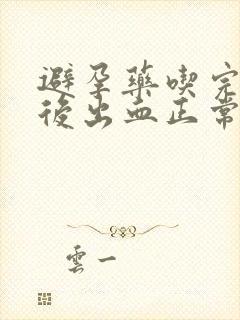 避孕藥喫完
後出血正常
雲一